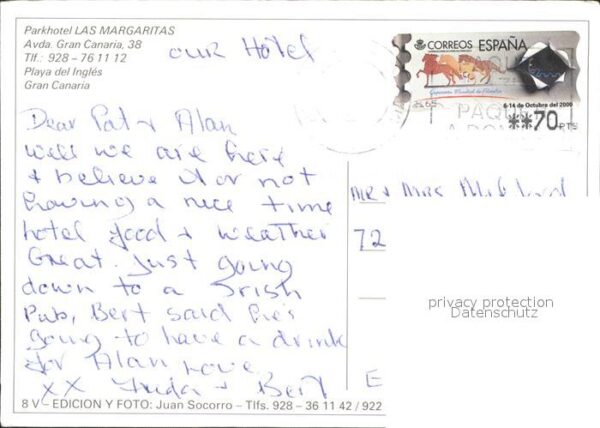 Parkhotel LAS MARGARITAS
Avda. Gran Canaria, 38
Tlf.: 928 – 76 11 12
Playa del Inglés
Gran Canaria
OUR Hotel
CORREOS ESPAÑA
6-14 de Octubre del 2000
**70 PTS
PAQUE
Dear Pat + Alan
Well we are here
+ believe it or not
having a nice time
hotel food + weather
Great. Just going
down to a Irish
Pub, Bert said he's
going to have a drink
for Alan Love
xx + Bert
Mr + Mrs
72
E
privacy protection
Datenschutz
8 V – EDICION Y FOTO: Juan Socorro – Tlfs. 928 – 36 11 42 / 922